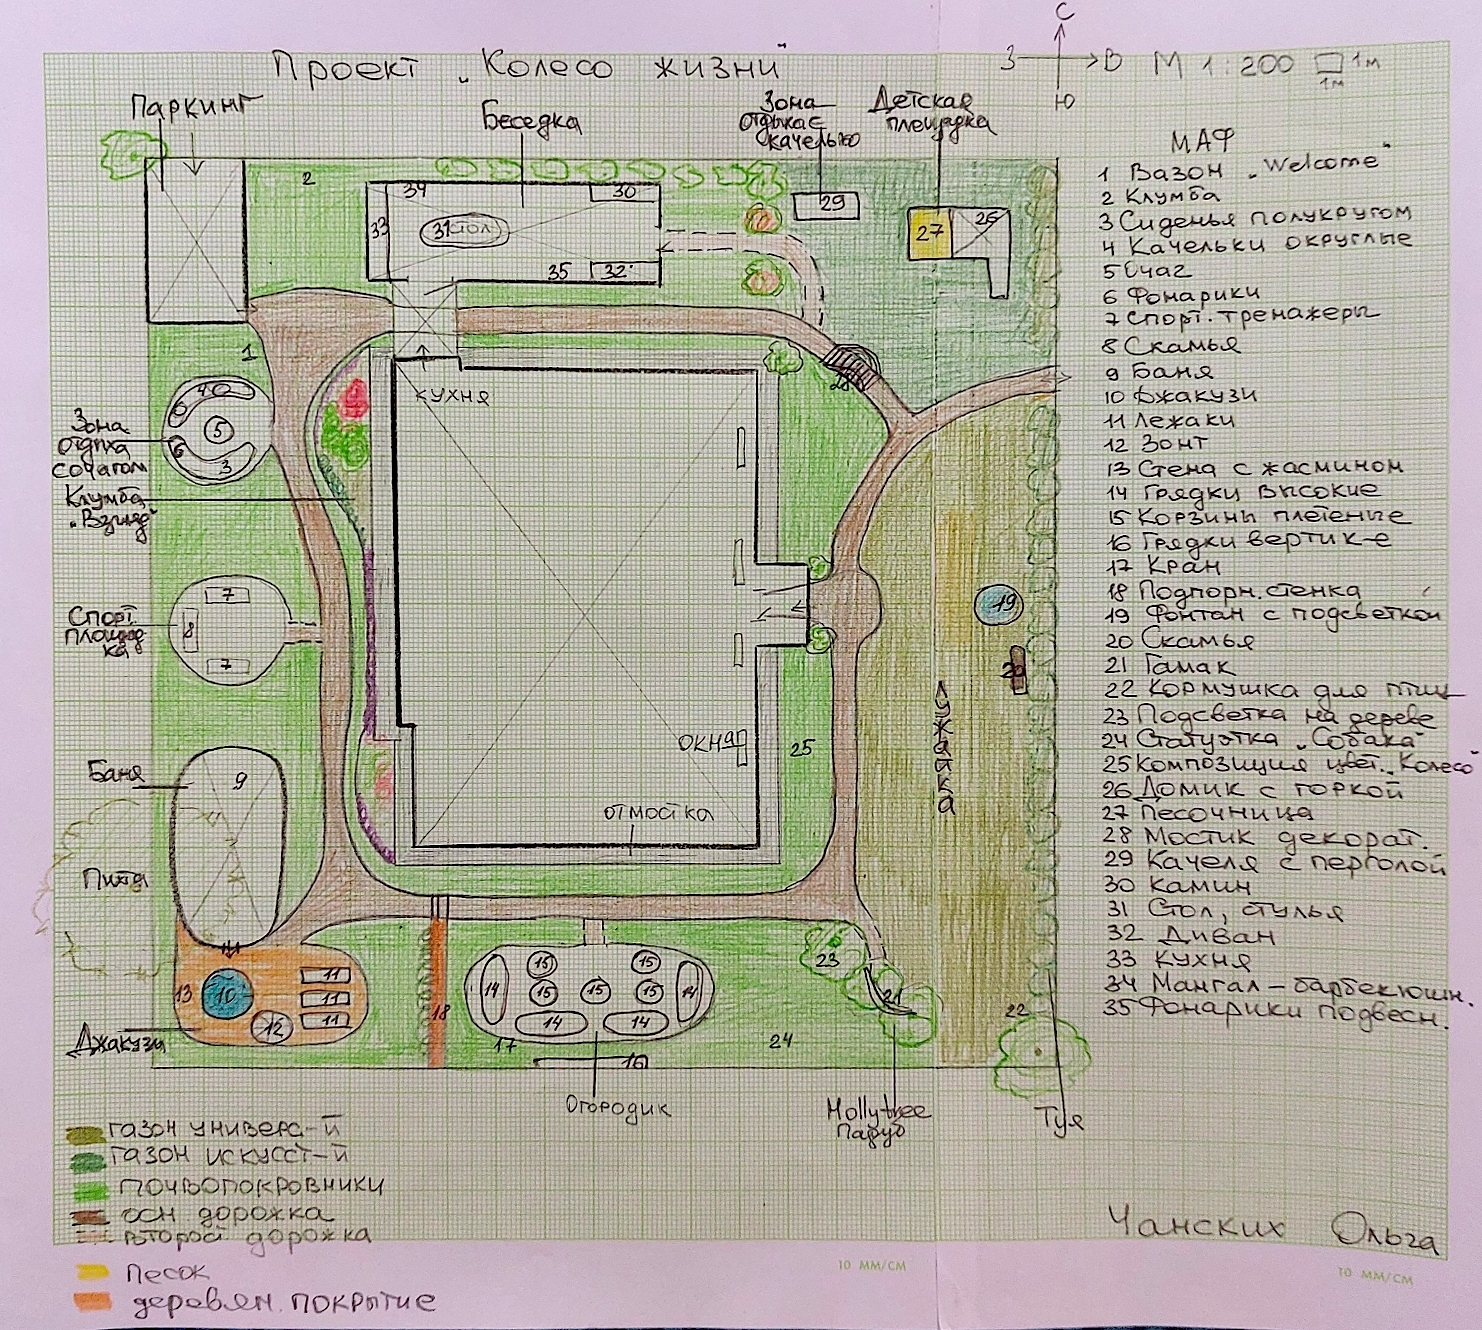 Проект „Колесо жизни"
С
З
В
Ю
М 1:200
1м
1м
Паркинг
Беседка
Зона
отдыха с
качелью
Детская
площадка
МАФ
1 Вазон „Welcome"
2 Клумба
3 Сиденья полукругом
4 Качельки округлые
5 Очаг
6 Фонарики
7 Спорт. тренажеры
8 Скамья
9 Баня
10 Джакузи
11 Лежаки
12 Зонт
13 Стена с жасмином
14 Грядки высокие
15 Корзины плетеные
16 Грядки вертик-е
17 Кран
18 Подпорн. стенка
19 Фонтан с подсветкой
20 Скамья
21 Гамак
22 Кормушка для птиц
23 Подсветка на дереве
24 Статуэтка „Собака"
25 Композиция цвет. „Колесо"
26 Домик с горкой
27 Песочница
28 Мостик декорат.
29 Качеля с перголой
30 Камин
31 Стол, стулья
32 Диван
33 Кухня
34 Мангал-барбекюшн.
35 Фонарики подвесн.
2
34
30
33
31 стол
35
32
29
27
26
1
28
кухня
4
5
6
3
Зона
отдыха
с очагом
Клумба
„Взгляд"
Спорт.
площад
ка
7
8
7
19
20
лужайка
окна
25
отмостка
Баня
9
Пихта
13
10
11
11
11
12
Джакузи
18
14
15
15
15
15
15
14
14
14
17
16
23
21
24
22
Огородик
Hollytree
Падуб
Туя
газон универс-й
газон искусст-й
почвопокровники
осн дорожка
второст дорожка
песок
деревян. покрытие
Чанских Ольга
10 MM/CM
10 MM/CM